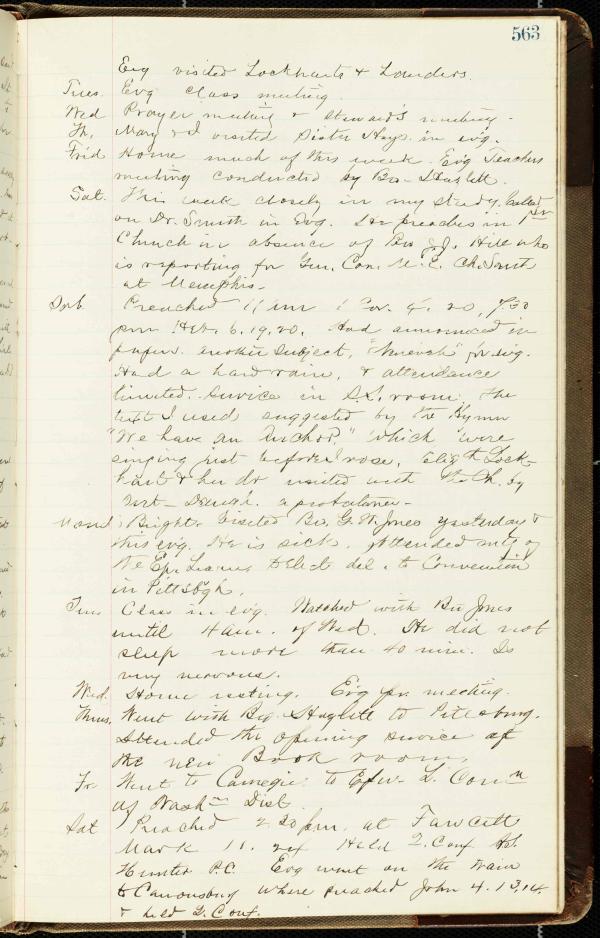 563
Evg visited Lockharts & Lounders.
Tues. Evg class meeting.
Wed Prayer meeting & steward's meeting.
Th. Mary & I visited Sister Hays in evg.
Frid Home much of this week. Evg Teachers
meeting conducted by Bro. Hazlett.
Sat. This week closely in my study. Called
on Dr. Smith in Evg. He preaches in 1st
Church in absence of Bro J.J. Hill who
is reporting for Gen. Con. M.E. Ch. South
at Memphis.
Sab. Preached 11 am 1 Cor. 4. 20, 7.30
pm Heb. 6.19,20. Had announced in
papers another subject, for evg.
Had a hard rain, & attendance
limited. Service in S.S. room. The
text I used suggested by the Hymn
"We have an Anchor," which were
singing just before I rose. Lock-
hart & her dr united with the Ch. by
a probationer.
Mond. Bright. Visited Bro. G.W. Jones yesterday &
this evg. He is sick. Attended mtg of
the Ep. League to elect del. to Convention
in Pittsbgh.
Tues Class in evg. Watched with Bro Jones
until 4 am. of Wed. He did not
sleep more than 40 min. Is
very nervous.
Wed. Home resting. Evg pr. meeting.
Thurs. Went with Bro. Hazlett to Pittsburg.
Attended the opening service of
the new Book room.
Fr Went to Carnegie to Epw. L. Conn
of Washn Dist.
Sat Preached 2.30 pm. at Fawcett
Mark 11. 24 Held Q. Conf.
Hunter P.C. Evg went on the train
to Canonsburg where preached John 4. 13,14.
& held Q. Conf.